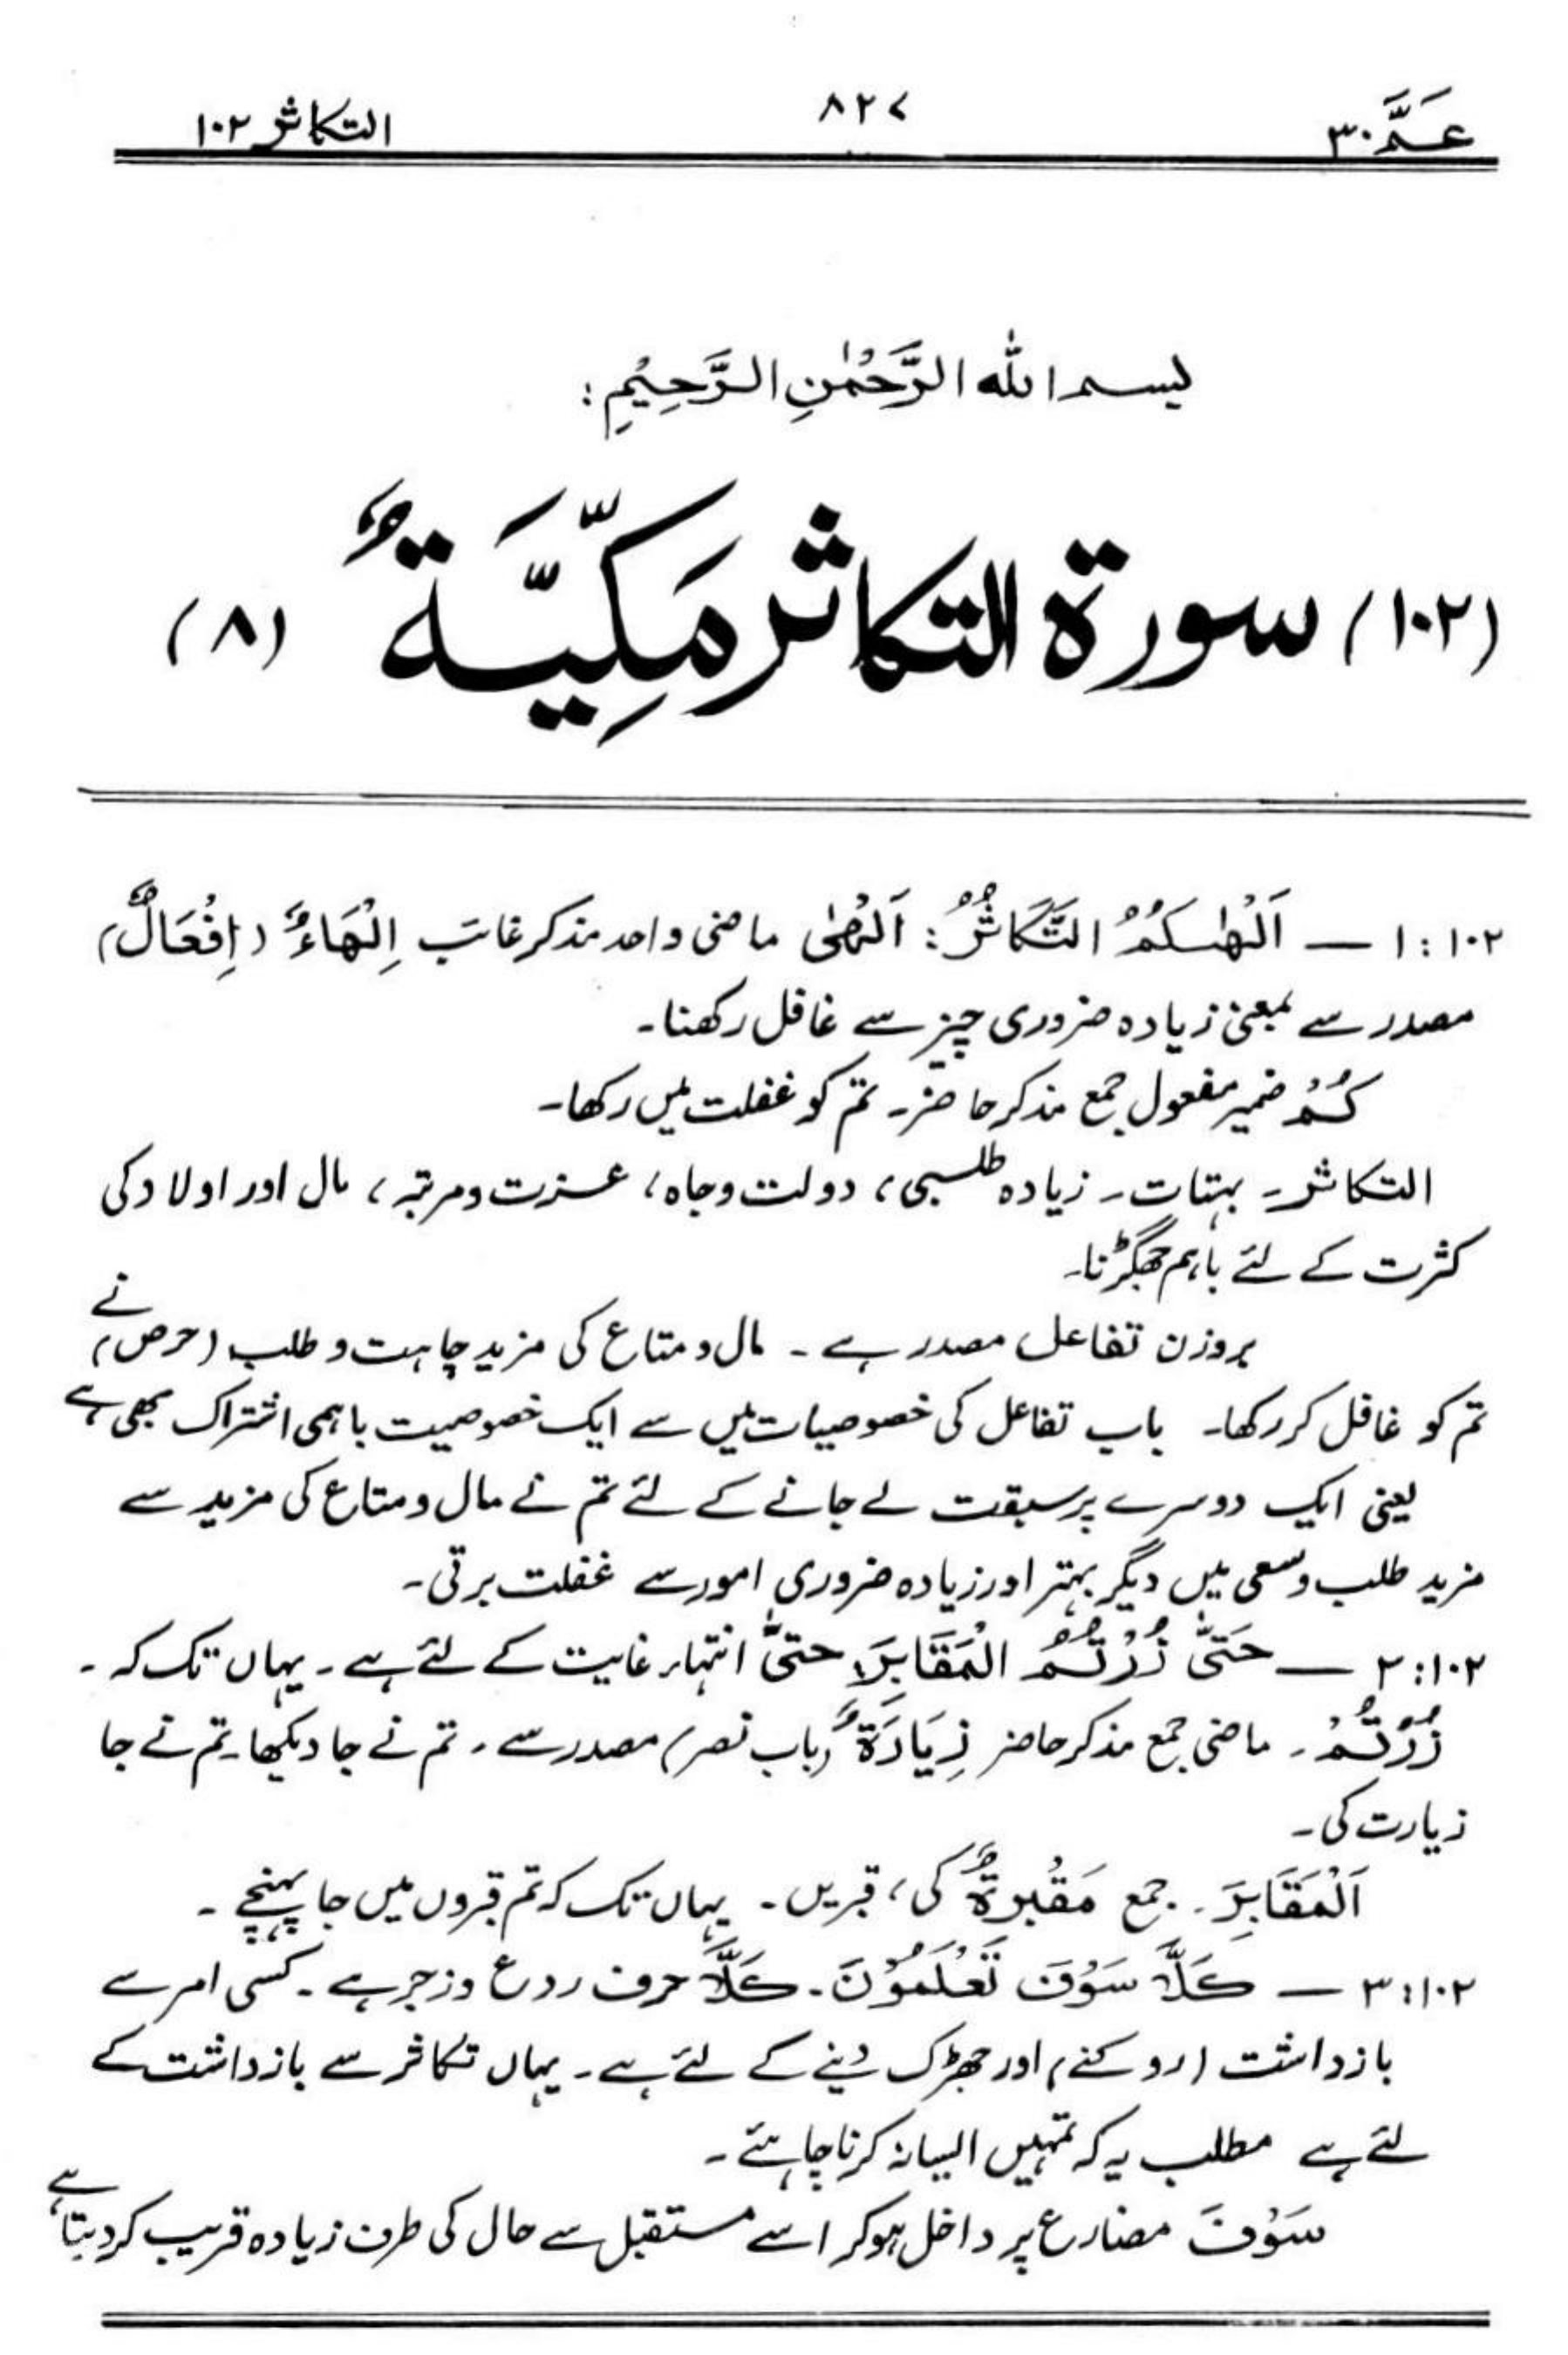 عَمَّ ۳۰
۸۲۷
التکاثر ۱۰۲
بسم الله الرَّحْمٰنِ الرَّحِيْمِ :
(۱۰۲) سورة التكاثر مَكِّيَّةٌ (۸)
۱:۱۰۲ — اَلْهٰىكُمُ التَّكَاثُرُ : اَلْهٰى ماضی واحد مذکر غائب اِلْهَاءٌ (اِفْعَالٌ)
مصدر سے بمعنی زیادہ ضروری چیز سے غافل رکھنا۔
كُمْ ضمیر مفعول جمع مذکر حاضر۔ تم کو غفلت میں رکھا۔
التکاثر۔ بہتات۔ زیادہ طلبی، دولت وجاہ، عزت ومرتبہ، مال اور اولاد کی
کثرت کے لئے باہم جھگڑنا۔
بروزن تفاعل مصدر ہے۔ مال و متاع کی مزید چاہت و طلب (حرص) نے
تم کو غافل کر رکھا۔ باب تفاعل کی خصوصیات میں سے ایک خصوصیت باہمی اشتراک بھی ہے
یعنی ایک دوسرے پر سبقت لے جانے کے لئے تم نے مال و متاع کی مزید سے
مزید طلب وسعی میں دیگر بہتر اور زیادہ ضروری امور سے غفلت برتی۔
۲:۱۰۲ — حَتّٰى زُرْتُمُ الْمَقَابِرَ، حتیّٰ انتہاء غایت کے لئے ہے۔ یہاں تک کہ۔
زُرْتُمْ۔ ماضی جمع مذکر حاضر زِيَارَةٌ (باب نصر) مصدر سے۔ تم نے جا دیکھا۔ تم نے جا
زیارت کی۔
اَلْمَقَابِرَ۔ جمع مَقْبرةٌ کی، قبریں۔ یہاں تک کہ تم قبروں میں جا پہنچے۔
۳:۱۰۲ — كَلَّا سَوْفَ تَعْلَمُوْنَ۔ كَلَّا حرف ردع وزجر ہے۔ کسی امر سے
بازداشت (روکنے) اور جھڑک دینے کے لئے ہے۔ یہاں تکاثر سے بازداشت کے
لئے ہے مطلب یہ کہ تمہیں ایسا نہ کرنا چاہئے۔
سَوْفَ مضارع پر داخل ہو کر اسے مستقبل سے حال کی طرف زیادہ قریب کر دیتا ہے